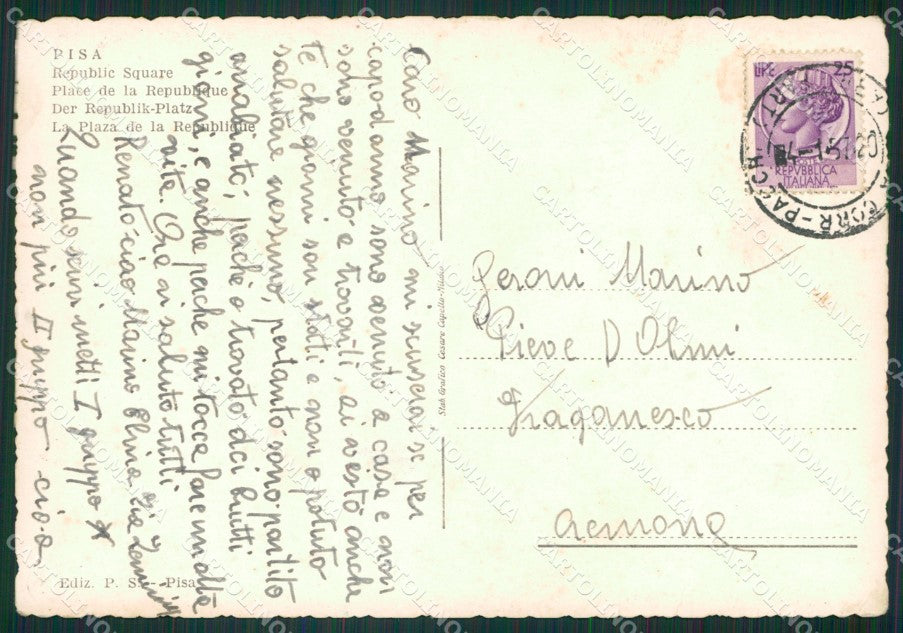 PISA
Republic Square
Place de la Republique
Der Republik-Platz
La Plaza de la Republique
Caro Marino mi scuserai se per
capodanno sono venuto a casa e non
sono venuto a trovarti, ai visto anche
te che giorni son stati e non o potuto
salutare nessuno, pertanto sono partito
perché o trovato dei brutti
giorni, e anche perche mi tocca fare
vita. Ora ai saluto tutti
Renato, ciao Marino
Quando scrivi metti I gruppo
non più II gruppo ciao
Ediz. P. S. - Pisa
Stab. Grafico Cesare Capello - Milano
LIRE 25
REPVBBLICA
ITALIANA
CORR-PACCHI
Geroni Marino
Pieve D Olmi
Fraganesco
Cremona
CARTOLINOMANIA